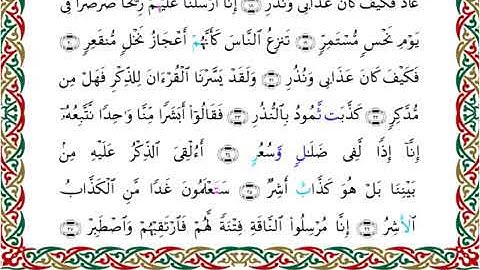 عَادٌ فَكَيْفَ كَانَ عَذَابِى وَنُذُرِ ١٨ إِنَّآ أَرْسَلْنَا عَلَيْهِمْ رِيحًا صَرْصَرًا فِى
يَوْمِ نَحْسٍ مُّسْتَمِرٍّ ١٩ تَنزِعُ ٱلنَّاسَ كَأَنَّهُمْ أَعْجَازُ نَخْلٍ مُّنقَعِرٍ ٢٠
فَكَيْفَ كَانَ عَذَابِى وَنُذُرِ ٢١ وَلَقَدْ يَسَّرْنَا ٱلْقُرْءَانَ لِلذِّكْرِ فَهَلْ مِن
مُّدَّكِرٍ ٢٢ كَذَّبَتْ ثَمُودُ بِٱلنُّذُرِ ٢٣ فَقَالُوٓا۟ أَبَشَرًا مِّنَّا وَٰحِدًا نَّتَّبِعُهُۥٓ
إِنَّآ إِذًا لَّفِى ضَلَٰلٍ وَسُعُرٍ ٢٤ أَءُلْقِىَ ٱلذِّكْرُ عَلَيْهِ مِنۢ
بَيْنِنَا بَلْ هُوَ كَذَّابٌ أَشِرٌ ٢٥ سَيَعْلَمُونَ غَدًا مَّنِ ٱلْكَذَّابُ
ٱلْأَشِرُ ٢٦ إِنَّا مُرْسِلُوا۟ ٱلنَّاقَةِ فِتْنَةً لَّهُمْ فَٱرْتَقِبْهُمْ وَٱصْطَبِرْ ٢٧